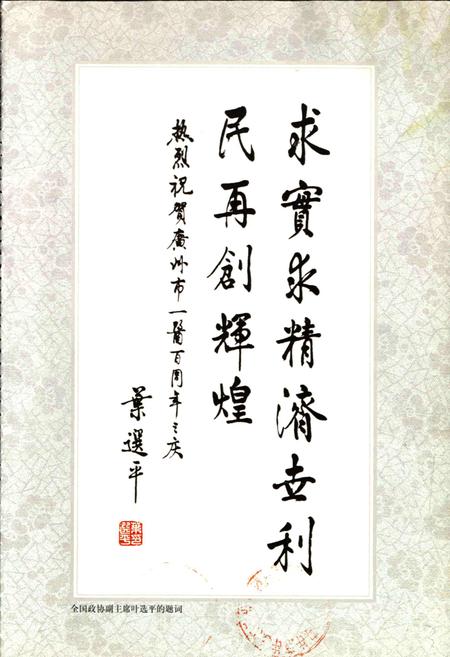 求實求精濟世利
民再創輝煌
热烈祝賀廣州市一醫百周年之庆
葉選平
全国政协副主席叶选平的题词